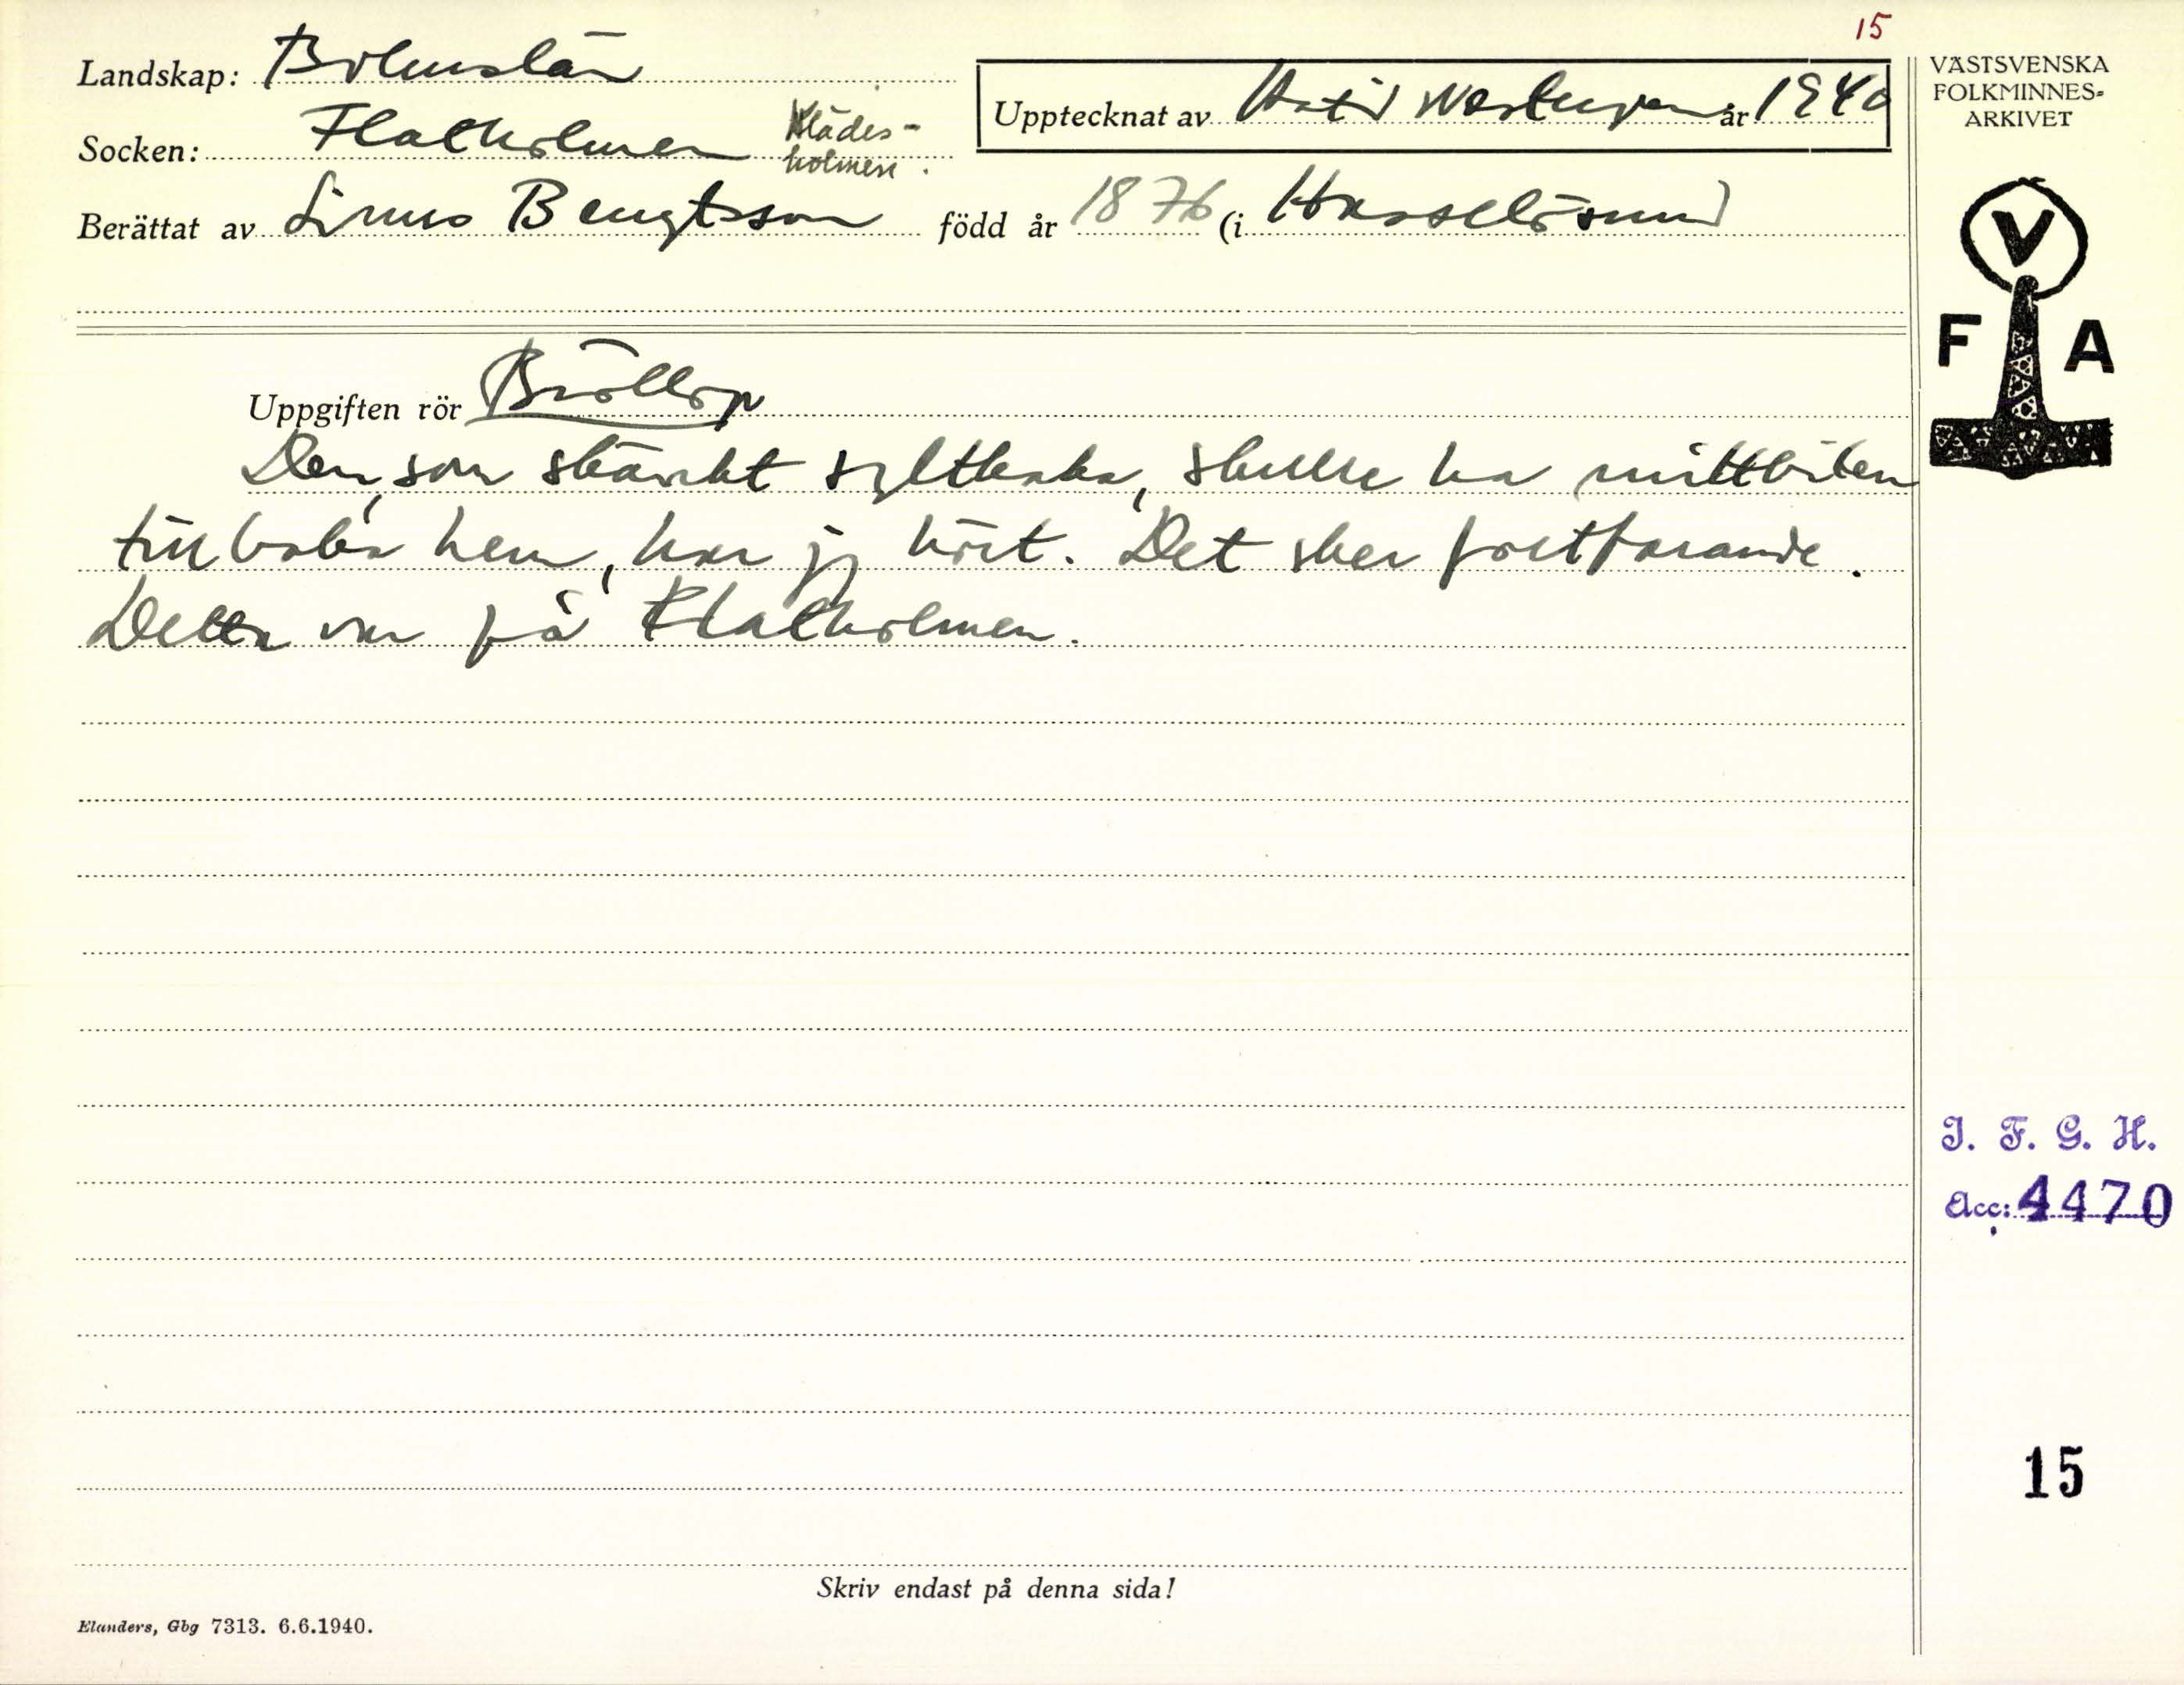 15
Landskap: Bohuslän
Socken: Flatholmen Klädes-
holmen.
Upptecknat av år 1940
VÄSTSVENSKA
FOLKMINNES-
ARKIVET
Berättat av Linus Bengtsson född år 1876 (i Hasselösund
V
F A
Uppgiften rör Bröllop
Den, som skänkt syltkaka, skulle ha mittbiten
tillbaka hem, har jg hört. Det sker fortfarande.
Detta var på Flatholmen.
I. F. G. H.
Acc: 4470
15
Skriv endast på denna sida!
Elanders, Gbg 7313. 6.6.1940.